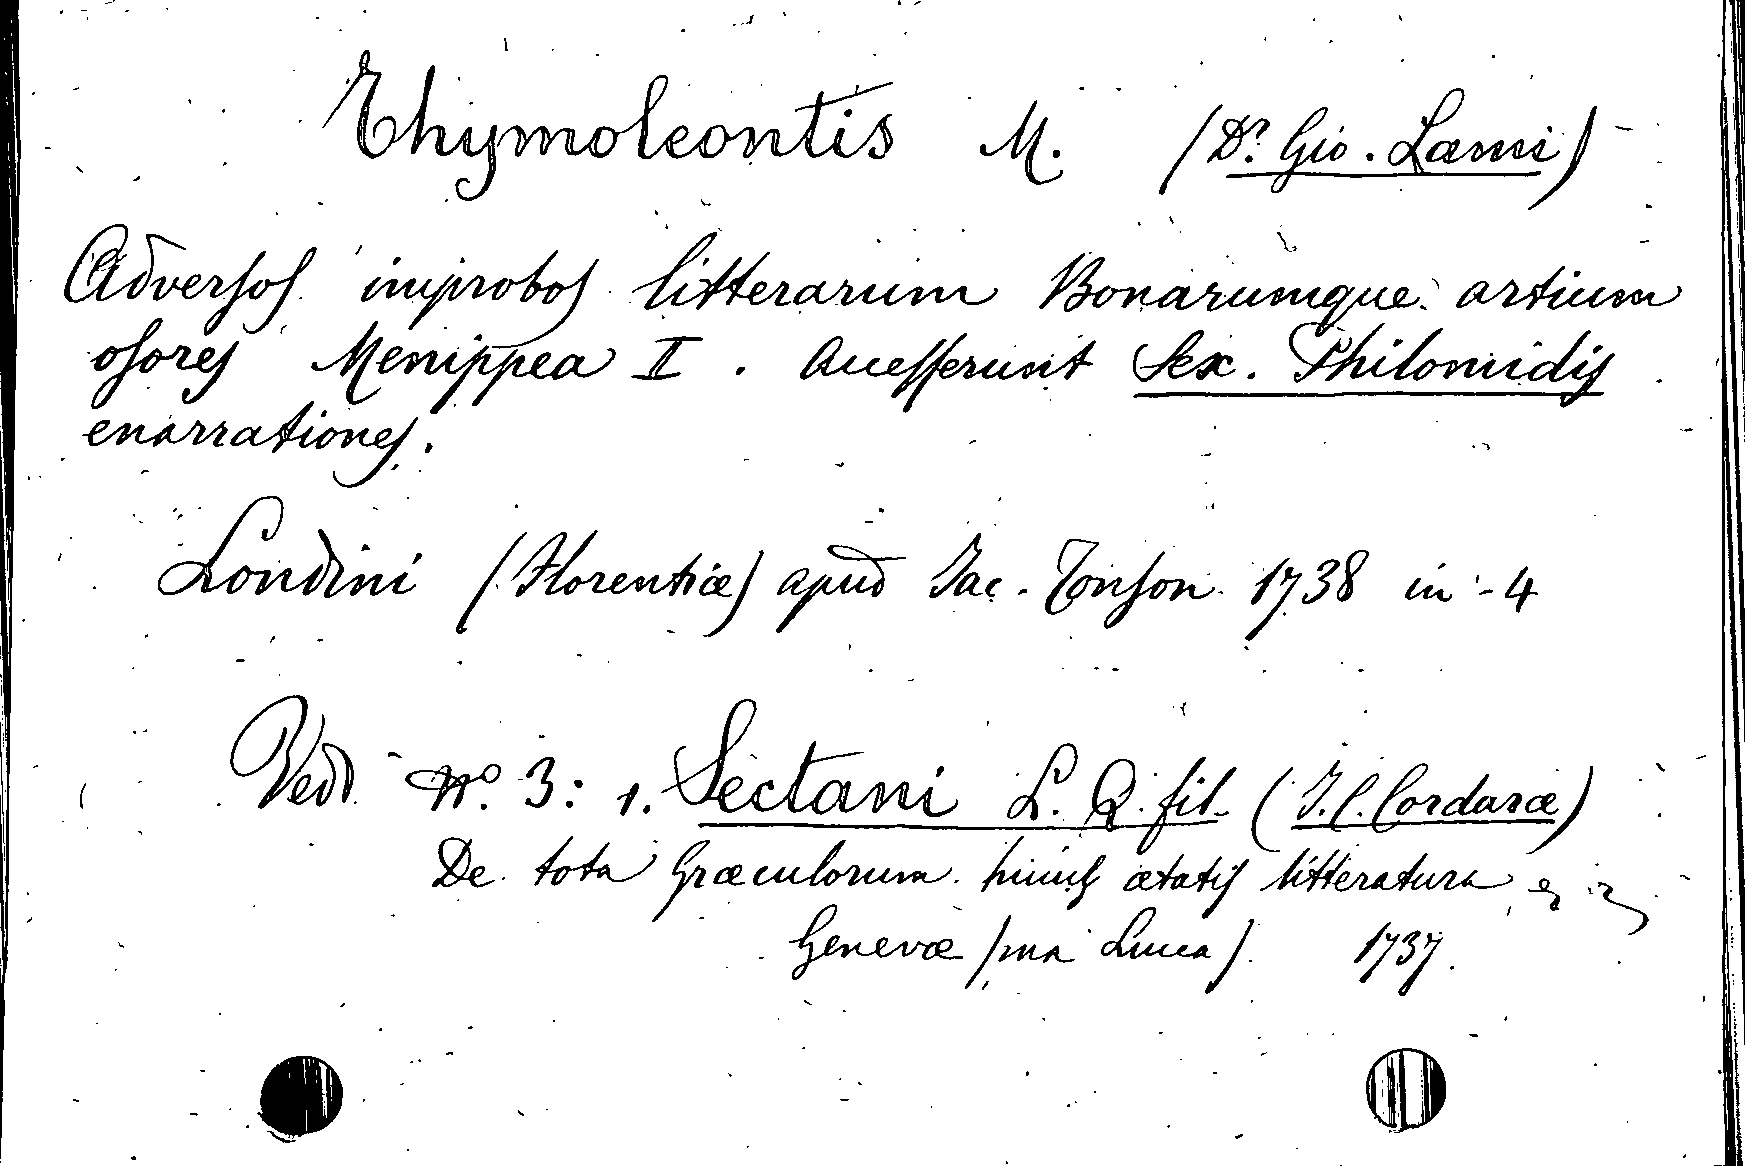 Thymoleontis M. (Dr. Gio. Lami)
Adversos improbos litterarum Bonarumque artium
osores Menippea II. Accesserunt Sex. Philomidis
enarrationes.
Londini (Florentiæ) apud Jac. Tonson 1738 in-4
Vedd. No. 3: 1. Sectani L. Q. fil. (J. C. Cordaræ)
De tota Græculorum hujus ætatis litteratura
Genevæ (ma Lucca) 1737.